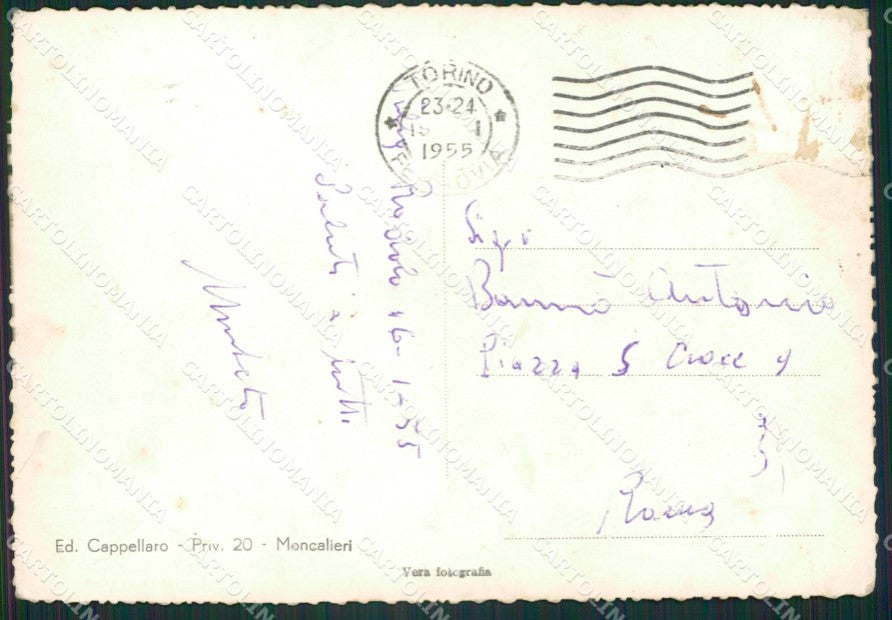 TORINO
23-24
1955
FERROVIA
16-1-55
Saluti a tutti
Umberto
Sigr
Antonio
Piazza S Croce
Roma
Ed. Cappellaro - Priv. 20 - Moncalieri
Vera fotografia
CARTOLINOMANIA